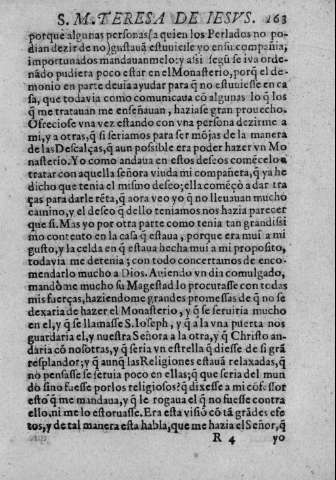 S. M. TERESA DE IESVS. 163
porque algunas personas (a quien los Perlados no po
dian dezir de no) gustauã estuuiesse yo en su compañia,
importunados mandauanmelo: y assi segũ se iva orde
nãdo pudiera poco estar en el Monasterio, porq̃ el de-
monio en parte deuia ayudar para q̃ no estuuiesse en ca
sa, que todavia como comunicaua cõ algunas lo q̃ los
q̃ me tratauan me enseñauan, haziase gran prouecho.
Ofreciose vna vez estando con vna persona dezirme a
mi, y a otras, q̃ si seriamos para ser mõjas de la manera
de las Descalças, q̃ aun possible era poder hazer vn Mo
nasterio. Yo como andaua en estos deseos comẽcelo a
tratar con aquella señora viuda mi compañera, q̃ ya he
dicho que tenia el mismo deseo; ella comẽçò a dar tra
ças para darle rẽta, q̃ aora veo yo q̃ no lleuauan mucho
camino, y el deseo q̃ dello teniamos nos hazia parecer
que si. Mas yo por otra parte como tenia tan grandissi
mo contento en la casa q̃ estaua, porque era mui a mi
gusto, y la celda en q̃ estaua hecha mui a mi proposito,
todavia me detenia; con todo concertamos de enco-
mendarlo mucho a Dios. Aviendo vn dia comulgado,
mandòme mucho su Magestad lo procurasse con todas
mis fuerças, haziendome grandes promessas de q̃ no se
dexaria de hazer el Monasterio, y q̃ se seruiria mucho
en el, y q̃ se llamasse S. Ioseph, y q̃ a la vna puerta nos
guardaria el, y nuestra Señora a la otra, y q̃ Christo an-
daria cõ nosotras, y q̃ seria vn estrella q̃ diesse de si grã
resplandor; y q̃ aunq̃ las Religiones estauã relaxadas, q̃
no pensasse se seruia poco en ellas; q̃ que seria del mun
do sino fuesse por los religiosos? q̃ dixesse a mi cõfessor
esto q̃ me mandaua, y q̃ le rogaua el q̃ no fuesse contra
ello, ni me lo estoruasse. Era esta visiõ cõ tã grãdes efe
tos, y de tal manera esta habla, que me hazia el Señor, q̃
R 4 yo